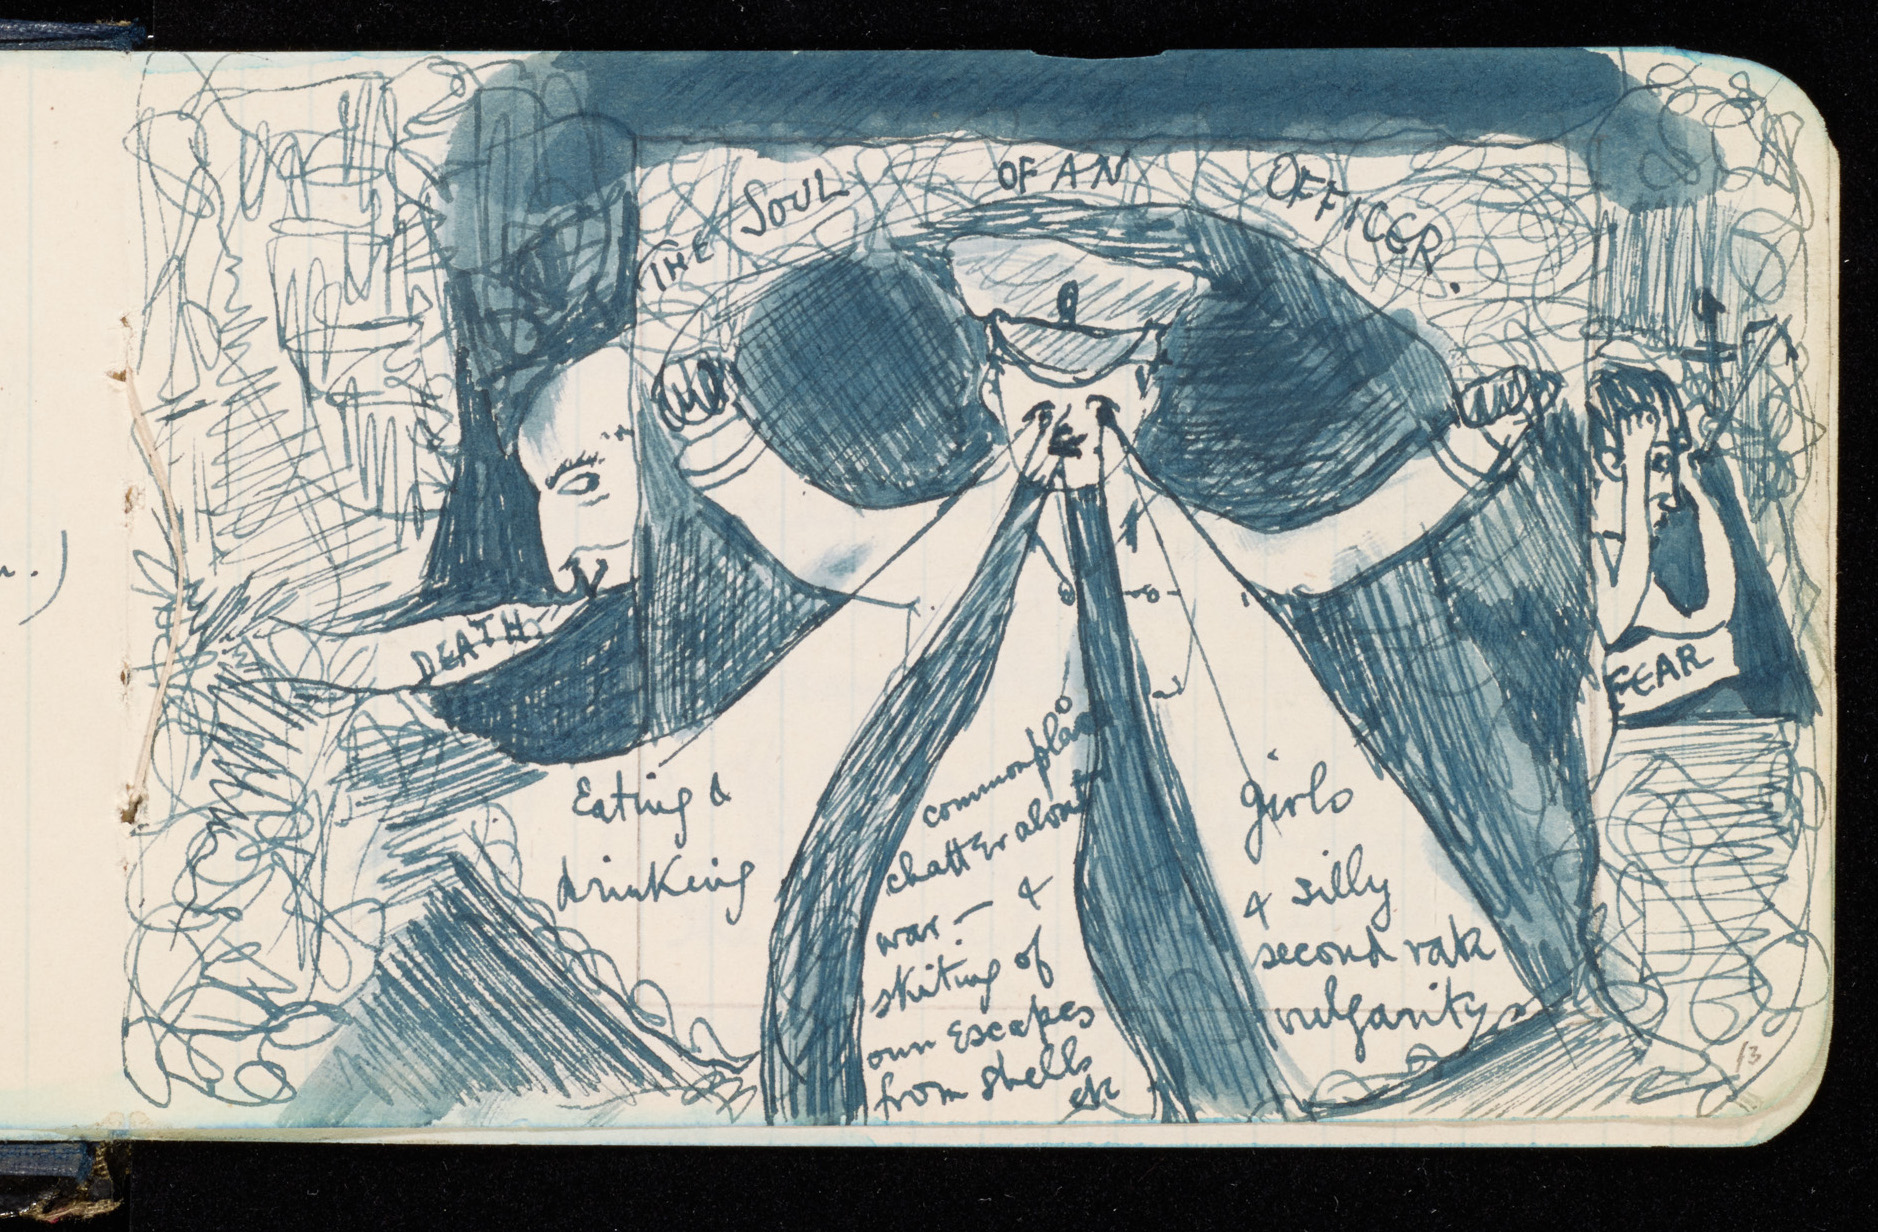 THE SOUL OF AN OFFICER.
DEATH
FEAR
Eating &
drinking
commonplace
chatter about
war — &
skiting of
own escapes
from shells
etc
girls
& silly
second rate
vulgarity
13